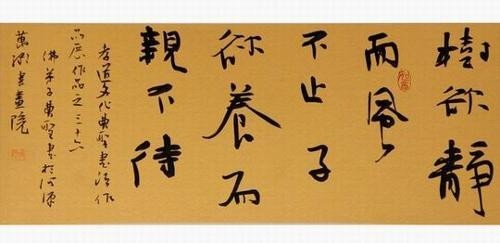 樹欲靜
而風
不止子
欲養而
親不待
孝道文化書法作
品展作品之三十六
佛弟子書於河源
萬湖書畫院